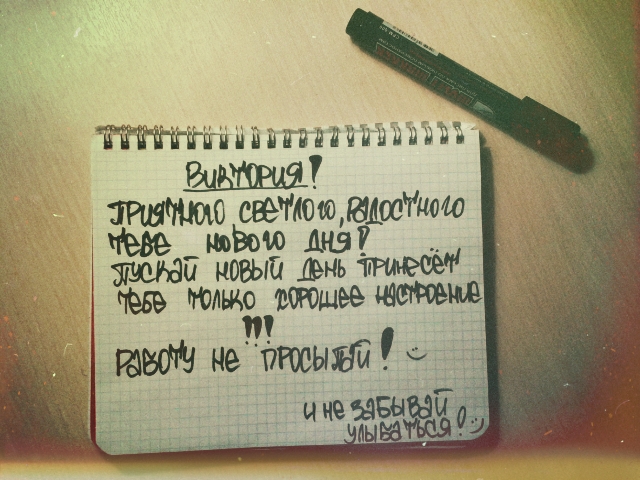 Виктория!
Приятного светлого, радостного
тебе нового дня!
Пускай новый день принесёт
тебе только хорошее настроение
!!!
Работу не просыпай! :)
и не забывай
улыбаться! :)